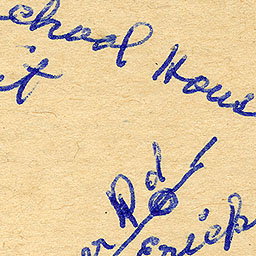 chool Hous
it
Rd
Erick